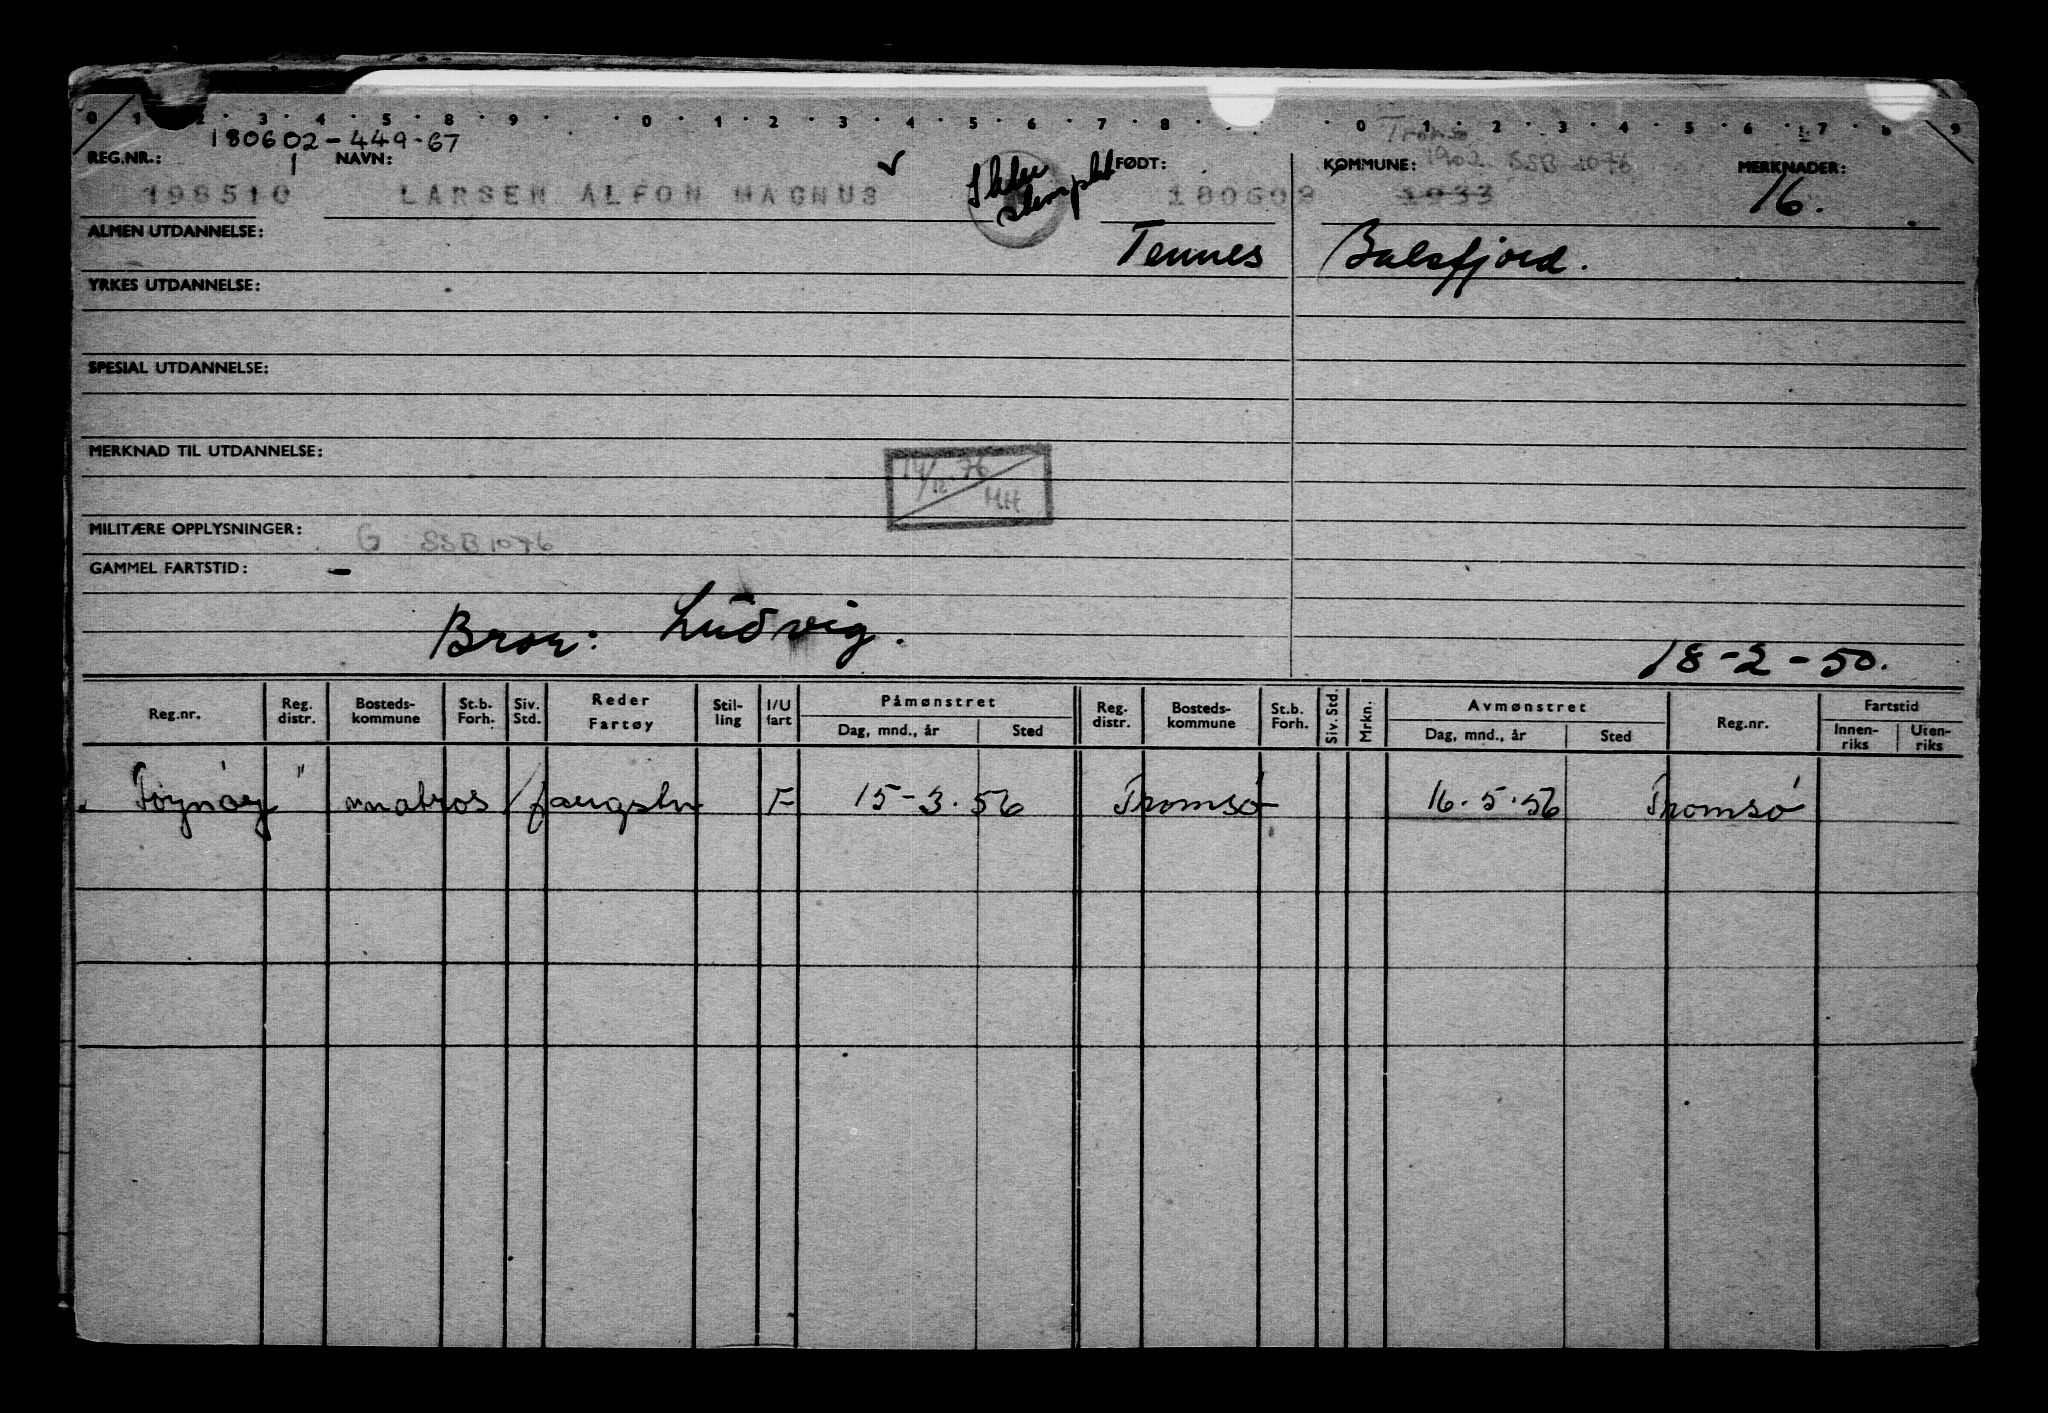 0 1 2 3 4 5 6 7 8 9 0 1 2 3 4 5 6 7 8 0 1 2 3 4 5 6 7 8 9
180602-449-67 Tromsø
REG.NR.: 1 NAVN: FØDT: KOMMUNE: 1902 SSB 1076 MERKNADER:
198510 LARSEN ALFON MAGNUS ✓ 180602 1933 16.
ALMEN UTDANNELSE: Tennes Balsfjord.
YRKES UTDANNELSE:
SPESIAL UTDANNELSE:
MERKNAD TIL UTDANNELSE:
14/12.76
MH
MILITÆRE OPPLYSNINGER: G SSB 1076
GAMMEL FARTSTID: -
Bror: Ludvig.
18-2-50.
Reg.nr. Reg. distr. Bosteds-kommune St.b. Forh. Siv. Std. Reder Fartøy Stil-ling I/U fart Påmønstret Dag, mnd., år Sted Reg. distr. Bosteds-kommune St.b. Forh. Siv. Std. Mrkn. Avmønstret Dag, mnd., år Sted Reg.nr. Fartstid Innen-riks Uten-riks
matros / F 15-3.56 Tromsø 16.5.56 Tromsø